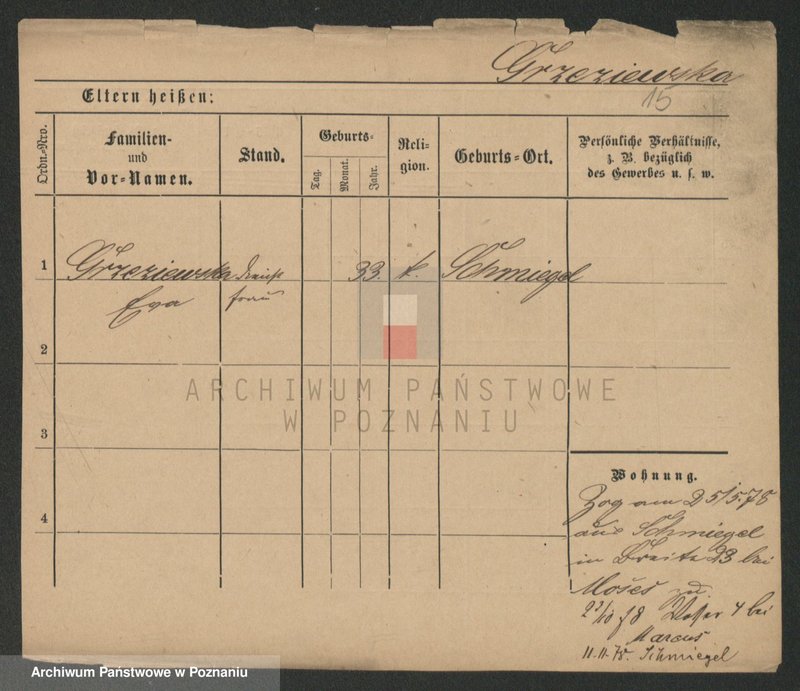 Grzeziewska
15
Eltern heißen:
Ordn.-Nro.
Familien-
und
Vor-Namen.
Stand.
Geburts-
Tag.
Monat.
Jahr.
Reli-
gion.
Geburts-Ort.
Persönliche Verhältnisse,
z. B. bezüglich
des Gewerbes u. s. w.
1 Grzeziewska 33. k. Schmiegel
Eva frau
2
3
4
ARCHIWUM PAŃSTWOWE
W POZNANIU
Wohnung.
Zog am 25/5.78
aus Schmiegel
in Breite 23 bei
Moses zu.
22/10 78 4 bei
Marcus
11.11.78. Schmiegel
Archiwum Państwowe w Poznaniu